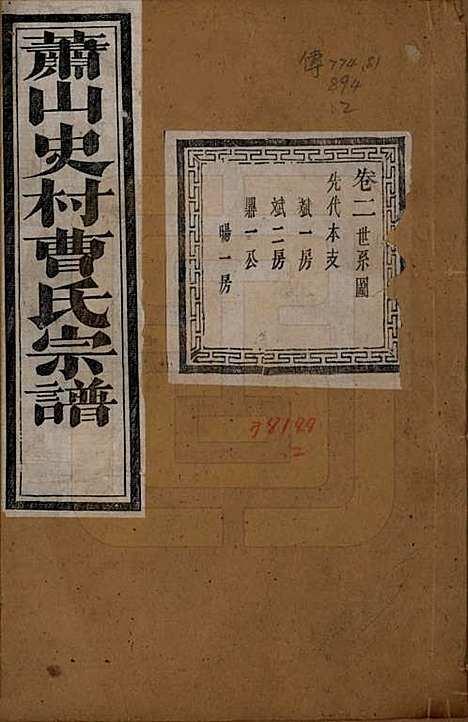 蕭山史村曹氏宗譜
傳 774.81
894
:2
卷二世系圖
先代本支
斌一房
斌二房
一公
暘一房
38199
2